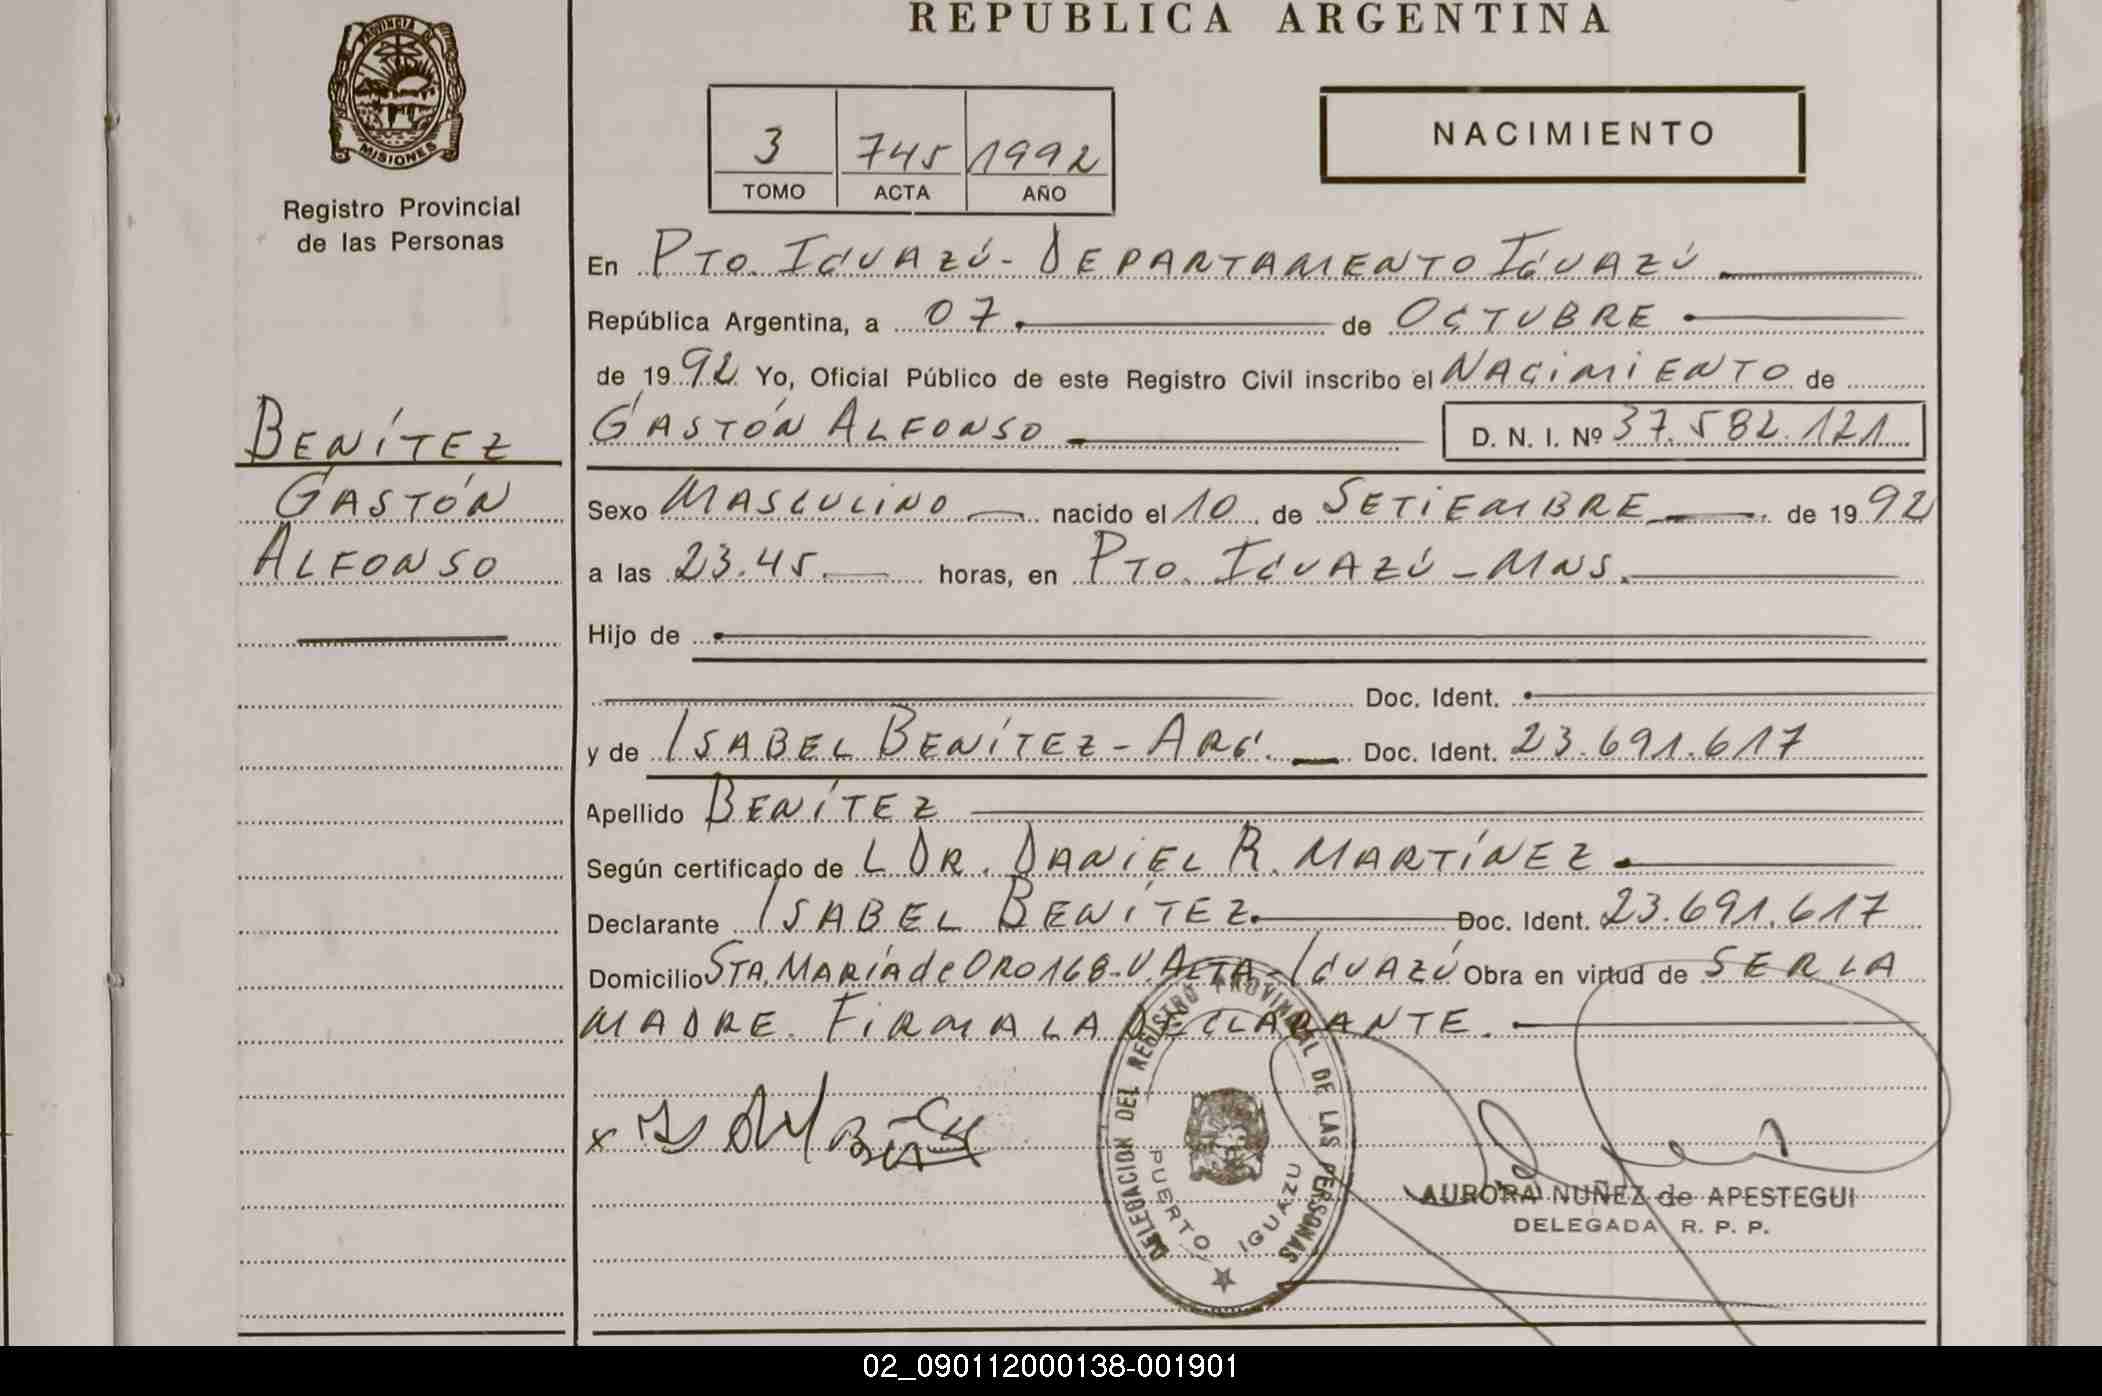 REPUBLICA ARGENTINA
PROVINCIA DE
MISIONES
Registro Provincial
de las Personas
3 745 1992
TOMO ACTA AÑO
NACIMIENTO
En PTO. IGUAZÚ - DEPARTAMENTO IGUAZÚ
República Argentina, a 07 de OCTUBRE
de 1992 Yo, Oficial Público de este Registro Civil inscribo el NACIMIENTO de
GASTÓN ALFONSO D. N. I. Nº 37.582.121
BENÍTEZ
GASTÓN
ALFONSO
Sexo MASCULINO nacido el 10 de SETIEMBRE de 1992
a las 23.45 horas, en PTO. IGUAZÚ - MNS.
Hijo de
Doc. Ident.
y de ISABEL BENÍTEZ - ARG. Doc. Ident. 23.691.617
Apellido BENÍTEZ
Según certificado de L DR. DANIEL R. MARTÍNEZ
Declarante ISABEL BENÍTEZ Doc. Ident. 23.691.617
Domicilio STA. MARÍA de ORO 168 - V. ALTA - IGUAZÚ Obra en virtud de SER LA
MADRE. FIRMA LA DECLARANTE.
DELEGACION DEL REGISTRO PROVINCIAL DE LAS PERSONAS
PUERTO IGUAZU
AURORA NUÑEZ de APESTEGUI
DELEGADA R. P. P.
02_090112000138-001901